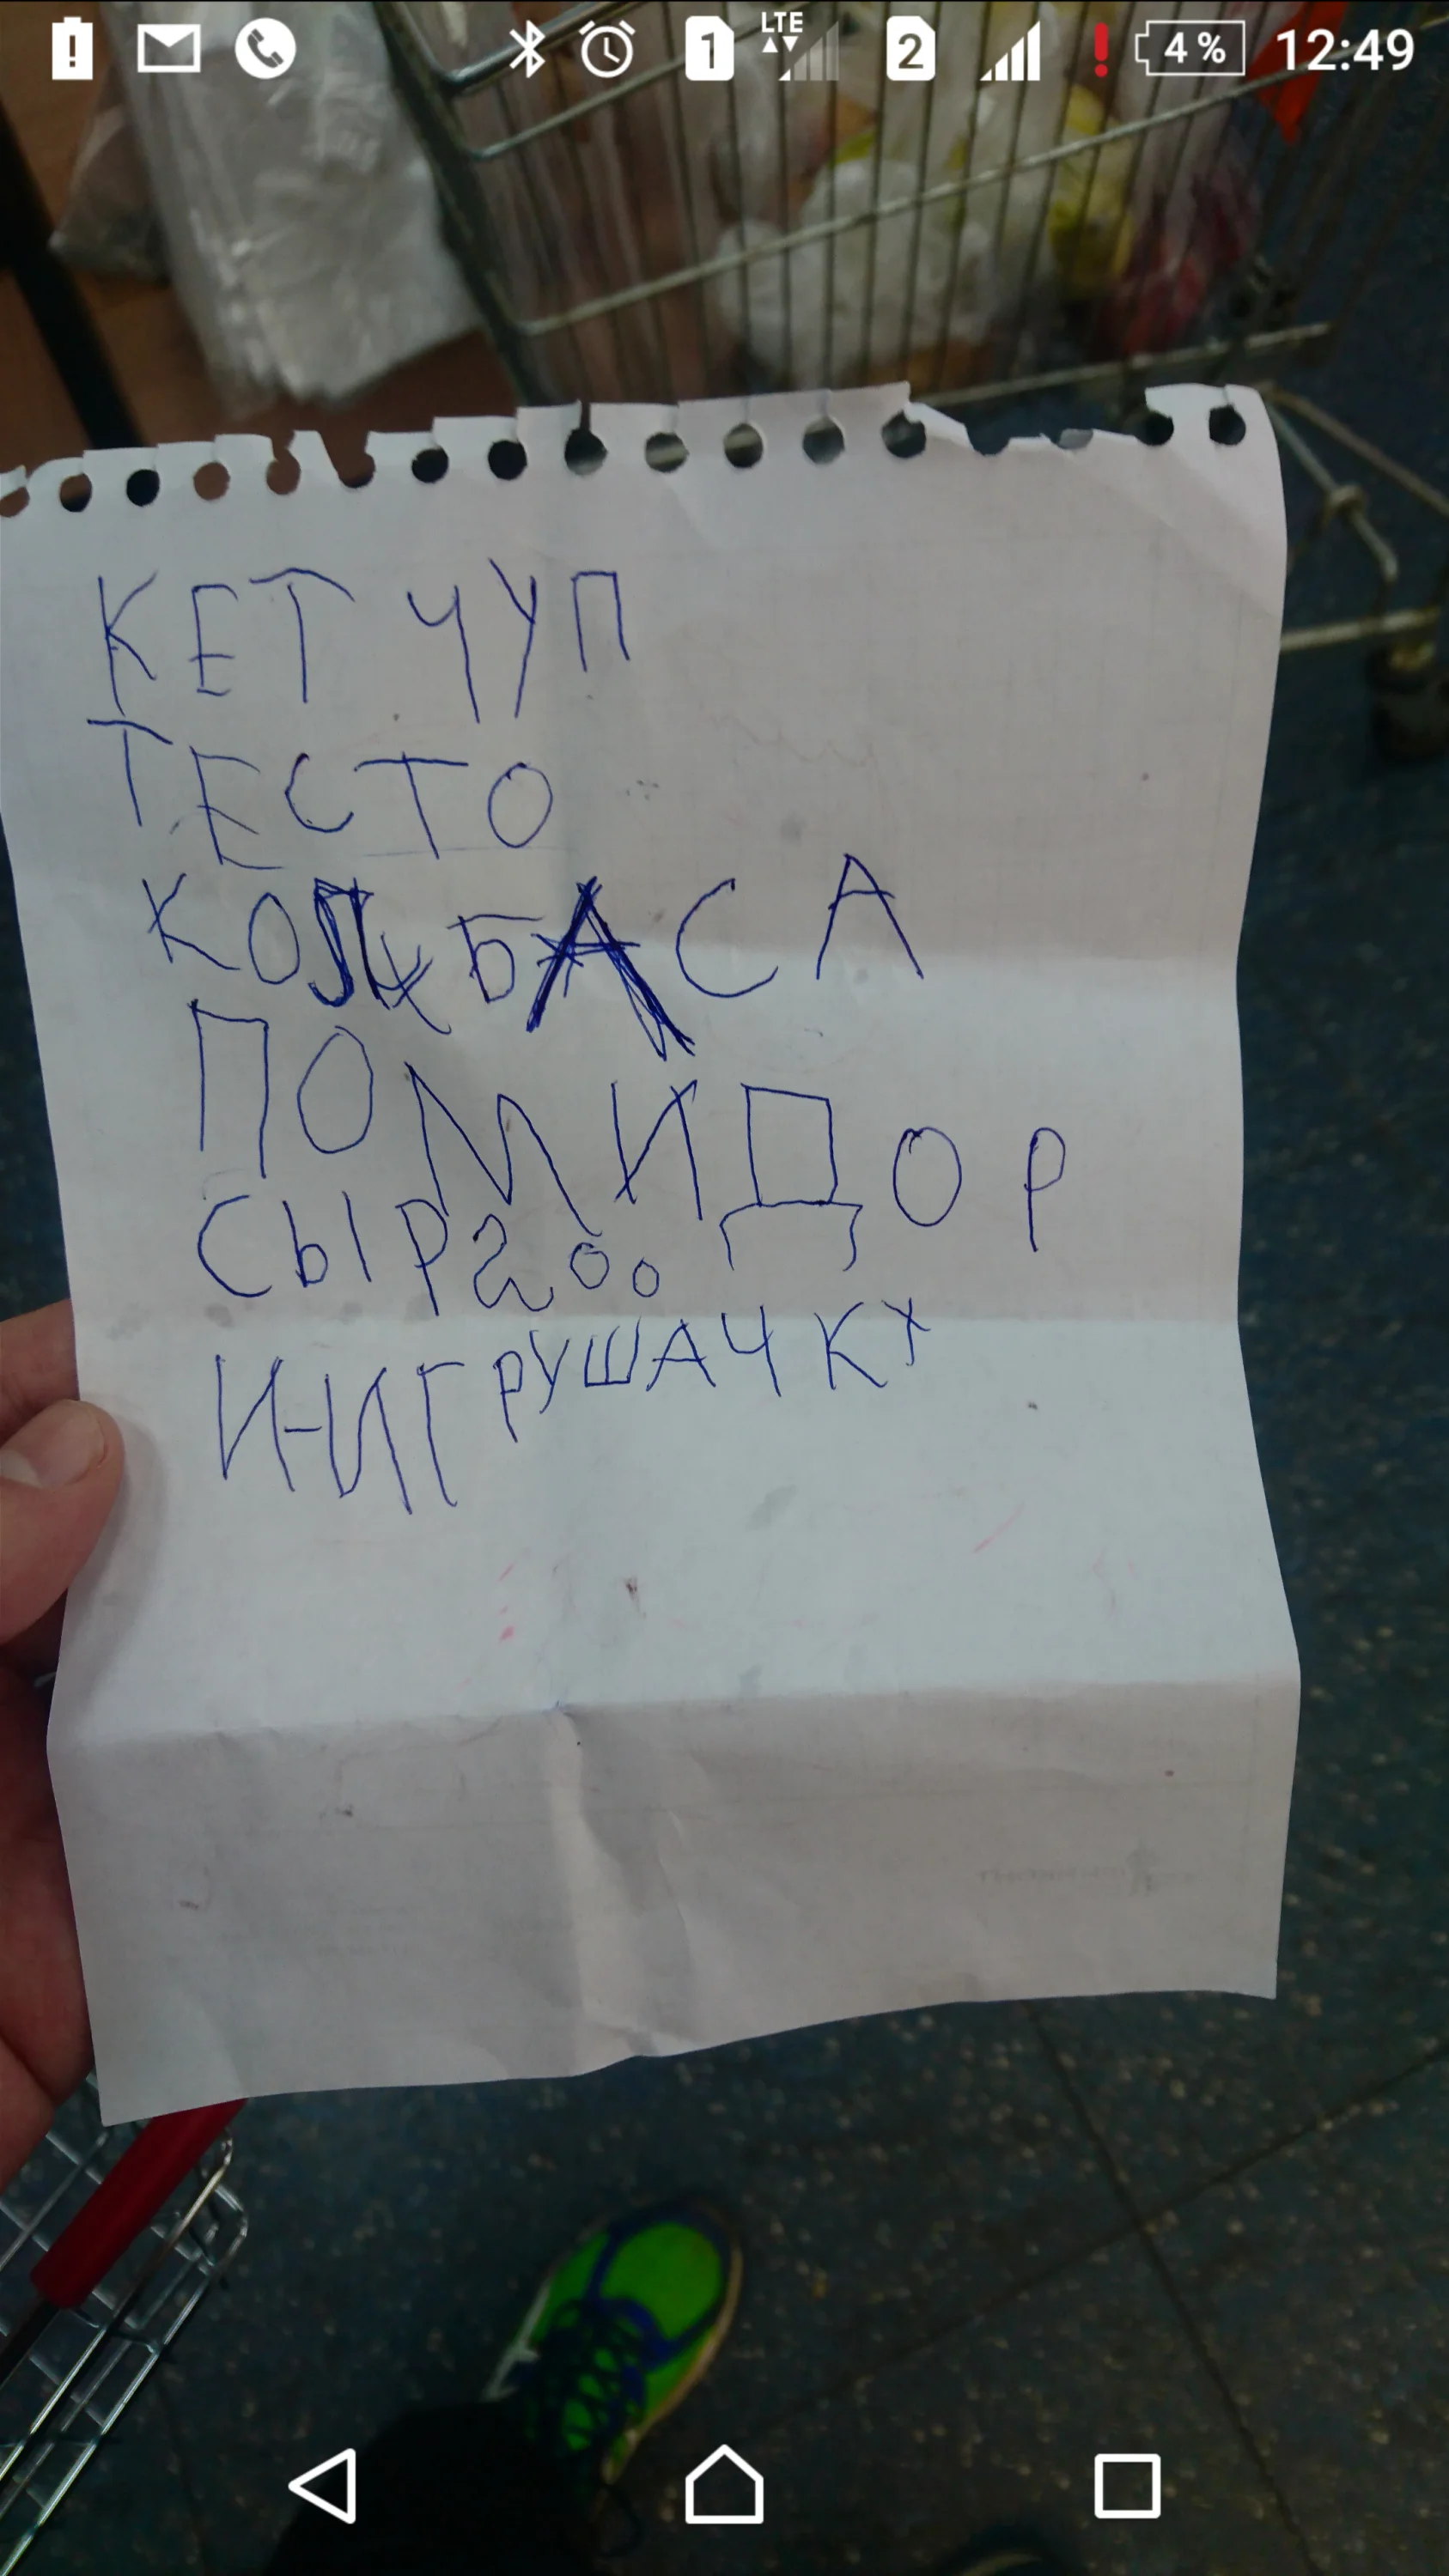 LTE
1 2 4% 12:49
КЕТЧУП
ТЕСТО
КОЛБАСА
ПОМИДОР
СЫР 200
И-ИГРУШАЧКУ